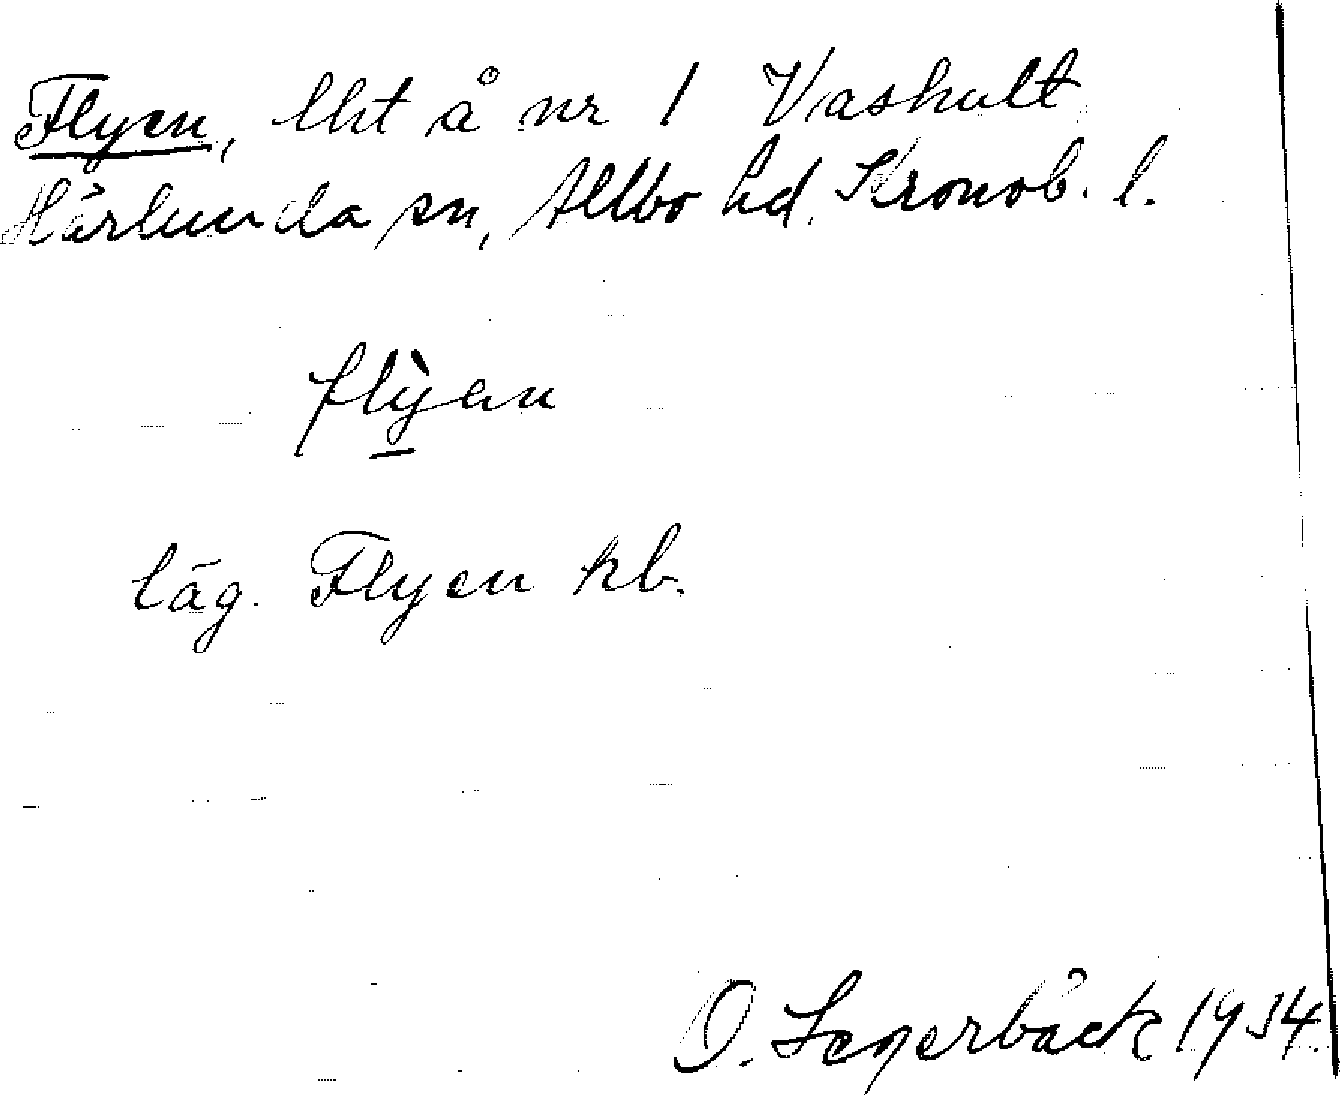 Flyen, lht å nr 1 Vashult
Härlunda sn, Allbo hd, Kronob. l.
flỳen
läg. Flyen kb.
O. Segerbäck 1934.